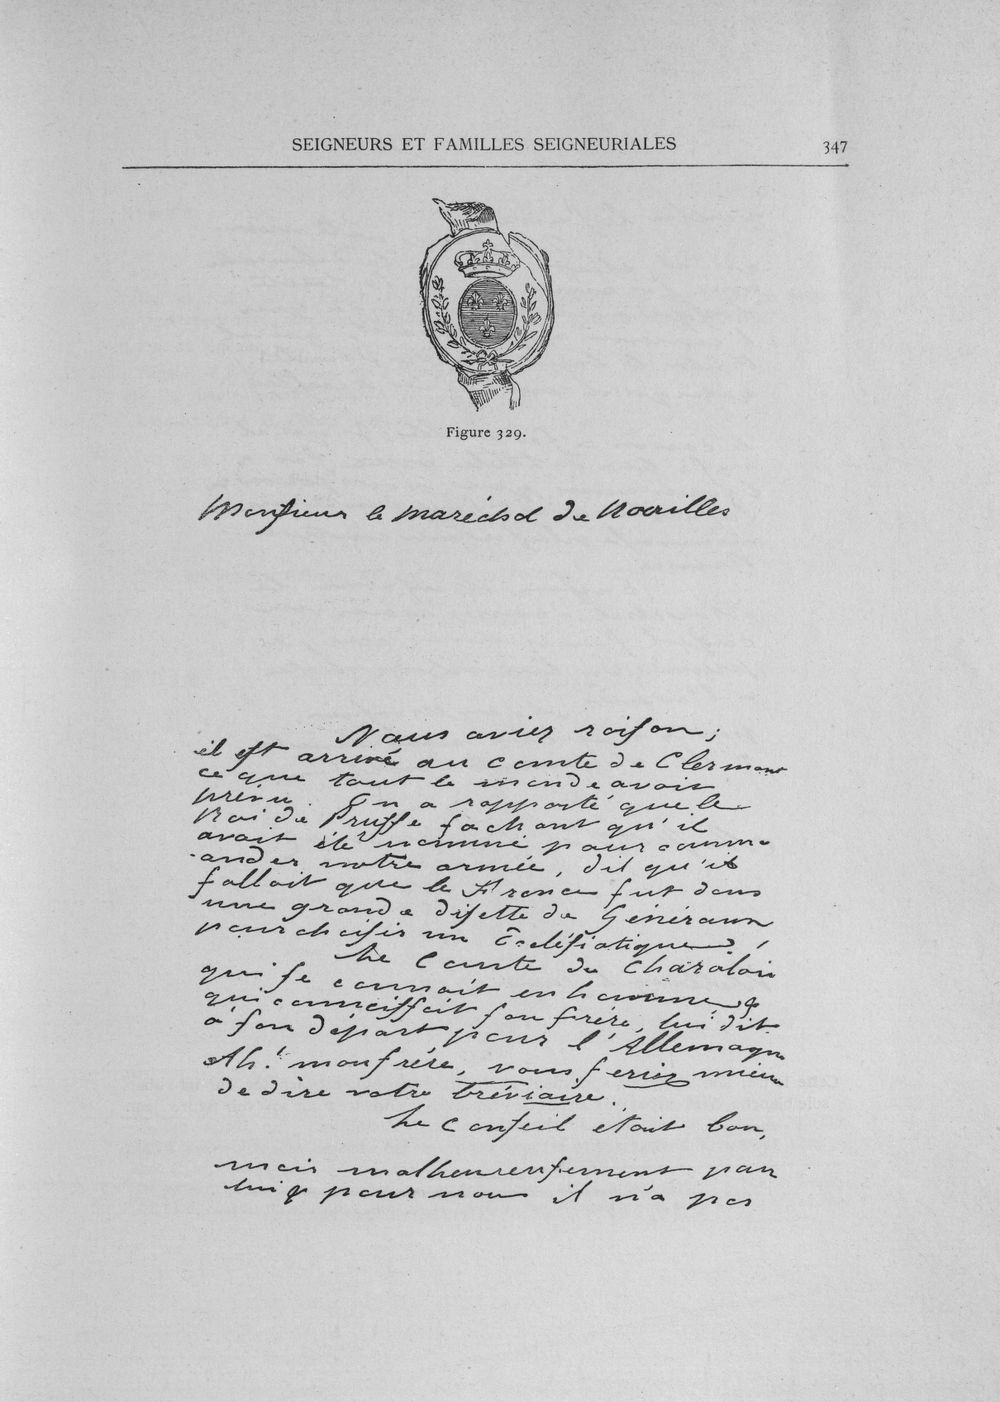 SEIGNEURS ET FAMILLES SEIGNEURIALES 347
Figure 329.
Monsieur le maréchal de Noailles
Vous aviez raison ;
il est arrivé au comte de Clermont
ce que tout le monde avoit
prévu. On a rapporté que le
Roi de Prusse sachant qu'il
avait été nommé pour comm-
ander notre armée, dit qu'il
falloit que la France fut dans
une grande disette de Généraux
pour choisir un Écclésiatique !
Le Comte de Charolois
qui se connait en homme &
qui connaissait son frère, lui dit
à son départ pour l'Allemagne
Ah! mon frère, vous feriez mieux
de dire votre bréviaire.
Le Conseil était bon,
mais malheureusement pour
lui & pour nous il n'a pas